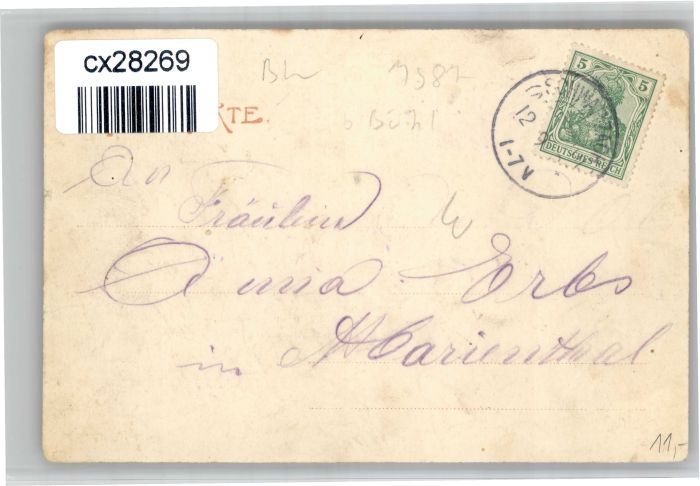 cx28269
KTE.
5 5
DEUTSCHES REICH
12
1-7N
An
Fräulein
Anna Erbs
in Marienthal
11,-